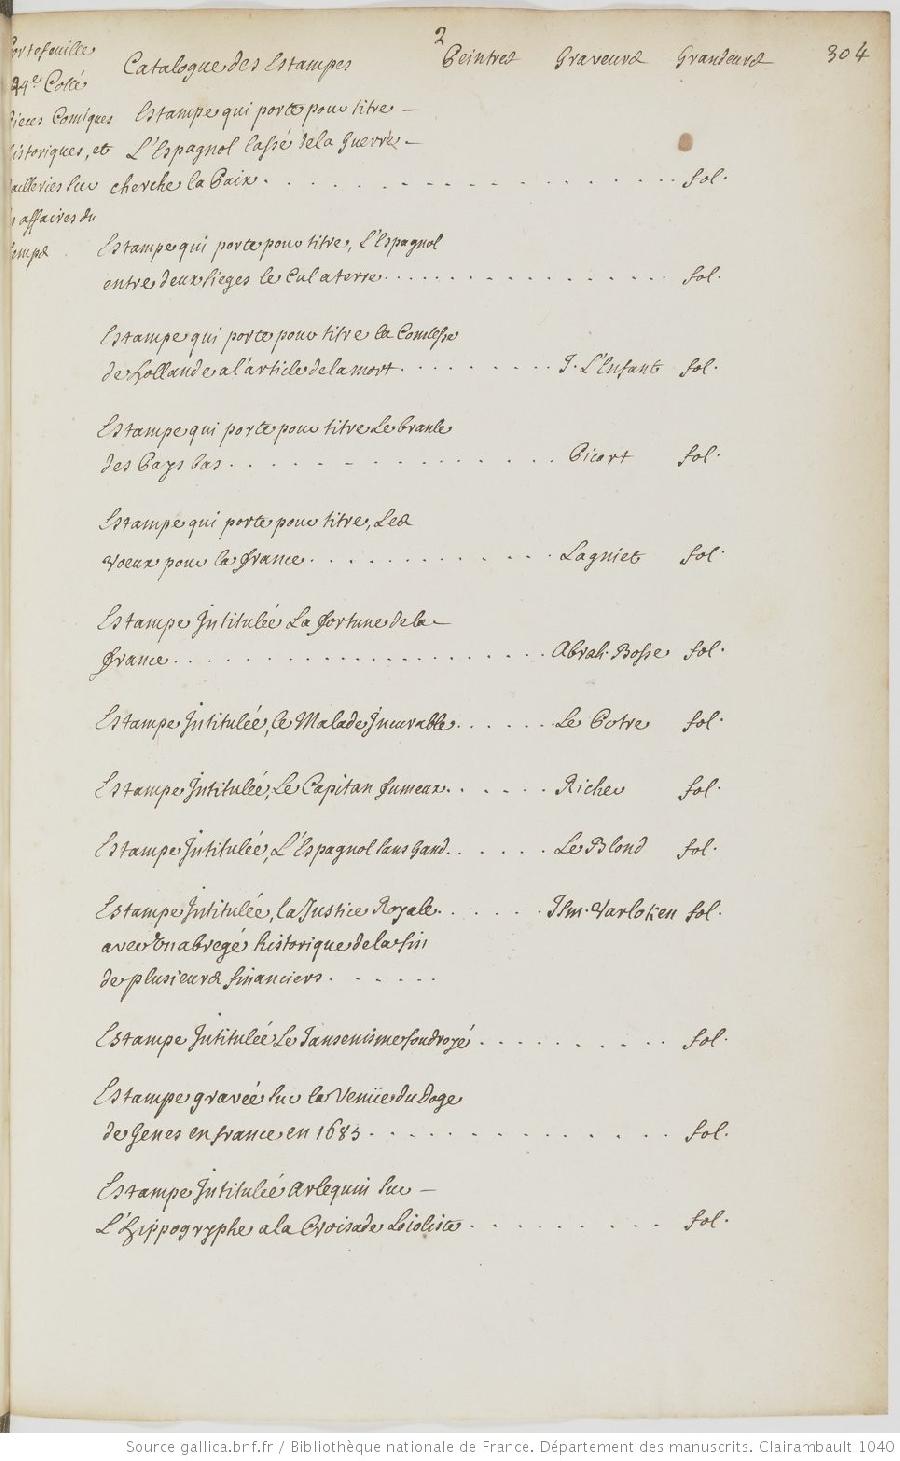 2
Portefeuille
Catalogue des Estampes Peintres Graveurs Grandeurs 304
Cotté
Pieces Comiques
historiques, et
railleries sur
les affaires du
temps
Estampe qui porte pour titre
L'Espagnol lassé de la Guerre
cherche la Paix. fol.
Estampe qui porte pour titre, L'Espagnol
entre deux sieges le Cul a terre. fol.
Estampe qui porte pour titre la Comtesse
de hollande a l'article de la mort. J. L'Enfant fol.
Estampe qui porte pour titre Le branle
des Pays bas. Picart fol.
Estampe qui porte pour titre, Les
voeux pour la france. Lagniet fol.
Estampe Intitulée La fortune de la
france. Abrah. Bosse fol.
Estampe Intitulée, le Malade Incurable. Le Potre fol.
Estampe Intitulée, Le Capitan fumeur. Richer fol.
Estampe Intitulée, L'Espagnol sans Gand. Le Blond fol.
Estampe Intitulée, la Justice Royale. Varloken fol.
avec Un abregé historique de la fin
de plusieurs financiers.
Estampe Intitulée Le Jansenisme foudroyé. fol.
Estampe gravée sur la Venüe du Doge
de Genes en france en 1685. fol.
Estampe Intitulée Arlequin sur
L'hippogryphe a la Croisade Loioliste. fol.
Source gallica.bnf.fr / Bibliothèque nationale de France. Département des manuscrits. Clairambault 1040